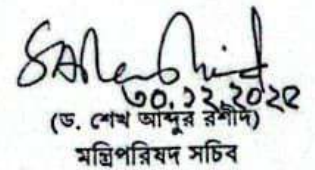 ৩০.১২.২০২৫
(ড. শেখ আব্দুর রশীদ)
মন্ত্রিপরিষদ সচিব